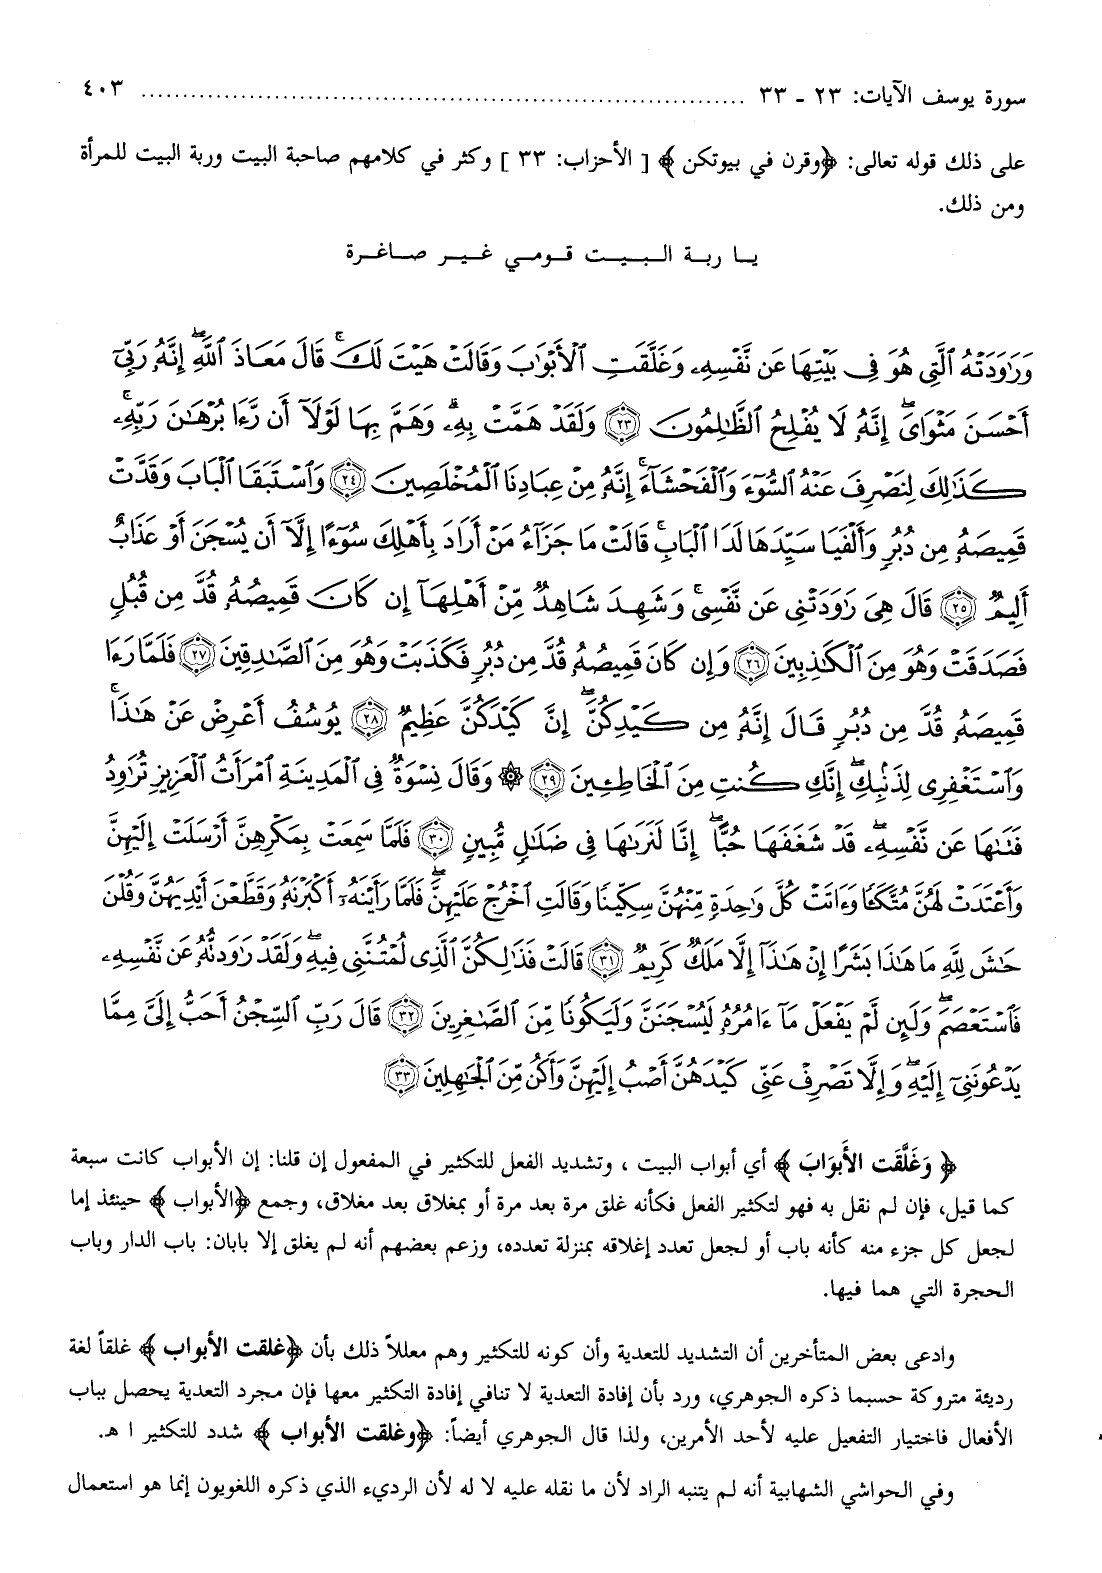 سورة يوسف الآيات: ٢٣ ـ ٣٣ ........................................................................ ٤٠٣
على ذلك قوله تعالى: ﴿وقرن في بيوتكن﴾ [الأحزاب: ٣٣] وكثر في كلامهم صاحبة البيت وربة البيت للمرأة
ومن ذلك.
يـا ربـة الـبـيـت قـومـي غـيـر صـاغـرة
وَرَٰوَدَتْهُ ٱلَّتِى هُوَ فِى بَيْتِهَا عَن نَّفْسِهِۦ وَغَلَّقَتِ ٱلْأَبْوَٰبَ وَقَالَتْ هَيْتَ لَكَ ۚ قَالَ مَعَاذَ ٱللَّهِ ۖ إِنَّهُۥ رَبِّىٓ
أَحْسَنَ مَثْوَاىَ ۖ إِنَّهُۥ لَا يُفْلِحُ ٱلظَّٰلِمُونَ ﴿٢٣﴾ وَلَقَدْ هَمَّتْ بِهِۦ ۖ وَهَمَّ بِهَا لَوْلَآ أَن رَّءَا بُرْهَٰنَ رَبِّهِۦ ۚ
كَذَٰلِكَ لِنَصْرِفَ عَنْهُ ٱلسُّوٓءَ وَٱلْفَحْشَآءَ ۚ إِنَّهُۥ مِنْ عِبَادِنَا ٱلْمُخْلَصِينَ ﴿٢٤﴾ وَٱسْتَبَقَا ٱلْبَابَ وَقَدَّتْ
قَمِيصَهُۥ مِن دُبُرٍ وَأَلْفَيَا سَيِّدَهَا لَدَا ٱلْبَابِ ۚ قَالَتْ مَا جَزَآءُ مَنْ أَرَادَ بِأَهْلِكَ سُوٓءًا إِلَّآ أَن يُسْجَنَ أَوْ عَذَابٌ
أَلِيمٌ ﴿٢٥﴾ قَالَ هِىَ رَٰوَدَتْنِى عَن نَّفْسِى ۚ وَشَهِدَ شَاهِدٌ مِّنْ أَهْلِهَآ إِن كَانَ قَمِيصُهُۥ قُدَّ مِن قُبُلٍ
فَصَدَقَتْ وَهُوَ مِنَ ٱلْكَٰذِبِينَ ﴿٢٦﴾ وَإِن كَانَ قَمِيصُهُۥ قُدَّ مِن دُبُرٍ فَكَذَبَتْ وَهُوَ مِنَ ٱلصَّٰدِقِينَ ﴿٢٧﴾ فَلَمَّا رَءَا
قَمِيصَهُۥ قُدَّ مِن دُبُرٍ قَالَ إِنَّهُۥ مِن كَيْدِكُنَّ ۖ إِنَّ كَيْدَكُنَّ عَظِيمٌ ﴿٢٨﴾ يُوسُفُ أَعْرِضْ عَنْ هَٰذَا ۚ
وَٱسْتَغْفِرِى لِذَنۢبِكِ ۖ إِنَّكِ كُنتِ مِنَ ٱلْخَاطِـِٔينَ ﴿٢٩﴾ ۞ وَقَالَ نِسْوَةٌ فِى ٱلْمَدِينَةِ ٱمْرَأَتُ ٱلْعَزِيزِ تُرَٰوِدُ
فَتَىٰهَا عَن نَّفْسِهِۦ ۖ قَدْ شَغَفَهَا حُبًّا ۖ إِنَّا لَنَرَىٰهَا فِى ضَلَٰلٍ مُّبِينٍ ﴿٣٠﴾ فَلَمَّا سَمِعَتْ بِمَكْرِهِنَّ أَرْسَلَتْ إِلَيْهِنَّ
وَأَعْتَدَتْ لَهُنَّ مُتَّكَـًٔا وَءَاتَتْ كُلَّ وَٰحِدَةٍ مِّنْهُنَّ سِكِّينًا وَقَالَتِ ٱخْرُجْ عَلَيْهِنَّ ۖ فَلَمَّا رَأَيْنَهُۥٓ أَكْبَرْنَهُۥ وَقَطَّعْنَ أَيْدِيَهُنَّ وَقُلْنَ
حَٰشَ لِلَّهِ مَا هَٰذَا بَشَرًا إِنْ هَٰذَآ إِلَّا مَلَكٌ كَرِيمٌ ﴿٣١﴾ قَالَتْ فَذَٰلِكُنَّ ٱلَّذِى لُمْتُنَّنِى فِيهِ ۖ وَلَقَدْ رَٰوَدتُّهُۥ عَن نَّفْسِهِۦ
فَٱسْتَعْصَمَ ۖ وَلَئِن لَّمْ يَفْعَلْ مَآ ءَامُرُهُۥ لَيُسْجَنَنَّ وَلَيَكُونًا مِّنَ ٱلصَّٰغِرِينَ ﴿٣٢﴾ قَالَ رَبِّ ٱلسِّجْنُ أَحَبُّ إِلَىَّ مِمَّا
يَدْعُونَنِىٓ إِلَيْهِ ۖ وَإِلَّا تَصْرِفْ عَنِّى كَيْدَهُنَّ أَصْبُ إِلَيْهِنَّ وَأَكُن مِّنَ ٱلْجَٰهِلِينَ ﴿٣٣﴾
﴿وَغَلَّقَت الأَبوَابَ﴾ أي أبواب البيت ، وتشديد الفعل للتكثير في المفعول إن قلنا: إن الأبواب كانت سبعة
كما قيل، فإن لم نقل به فهو لتكثير الفعل فكأنه غلق مرة بعد مرة أو بمغلاق بعد مغلاق، وجمع ﴿الأبواب﴾ حينئذ إما
لجعل كل جزء منه كأنه باب أو لجعل تعدد إغلاقه بمنزلة تعدده، وزعم بعضهم أنه لم يغلق إلا بابان: باب الدار وباب
الحجرة التي هما فيها.
وادعى بعض المتأخرين أن التشديد للتعدية وأن كونه للتكثير وهم معللاً ذلك بأن ﴿غلقت الأبواب﴾ غلقاً لغة
رديئة متروكة حسبما ذكره الجوهري، ورد بأن إفادة التعدية لا تنافي إفادة التكثير معها فإن مجرد التعدية يحصل بباب
الأفعال فاختيار التفعيل عليه لأحد الأمرين، ولذا قال الجوهري أيضاً: ﴿وغلقت الأبواب﴾ شدد للتكثير ا هـ.
وفي الحواشي الشهابية أنه لم يتنبه الراد لأن ما نقله عليه لا له لأن الرديء الذي ذكره اللغويون إنما هو استعمال